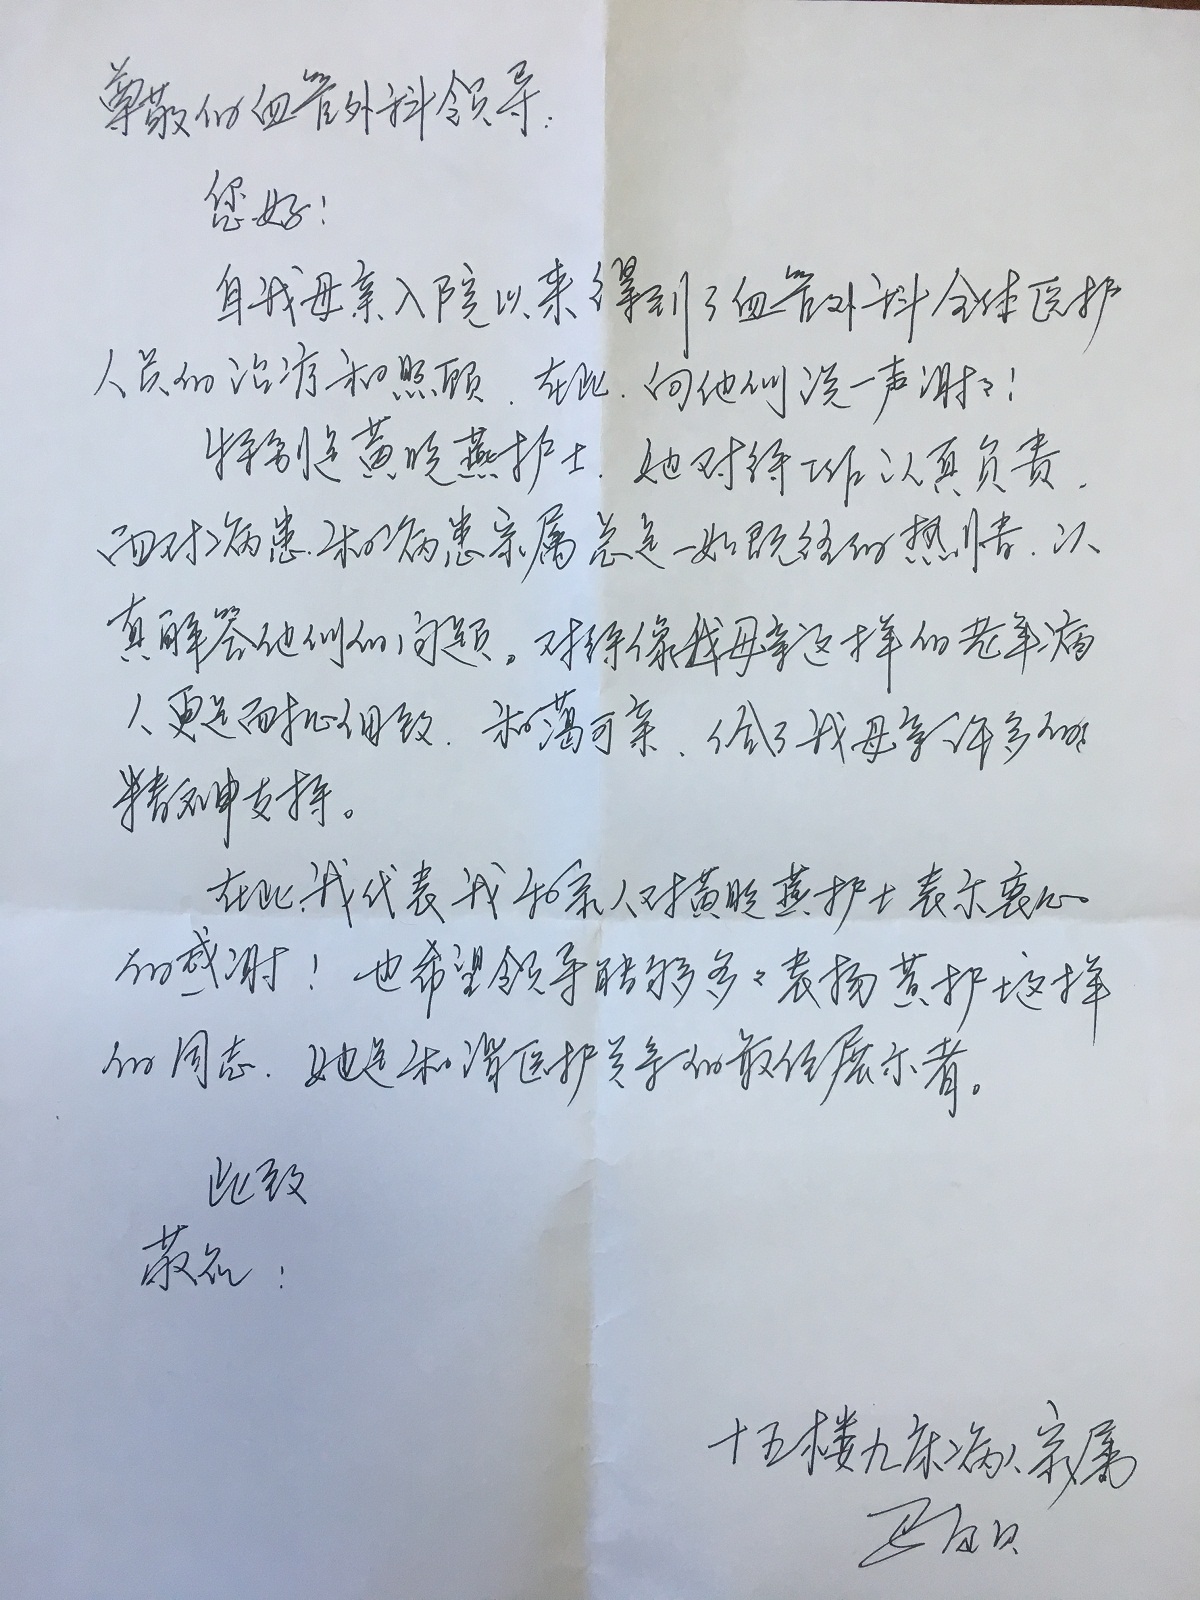 尊敬的血管外科领导:
您好!
自我母亲入院以来得到了血管外科全体医护
人员的治疗和照顾,在此,向他们说一声谢々!
特别是黄晓燕护士,她对待工作认真负责,
面对病患和病患家属总是一如既往的热情,认
真解答他们的问题。对待像我母亲这样的老年病
人更是耐心细致,和蔼可亲,给了我母亲许多的
精神支持。
在此,我代表我和家人对黄晓燕护士表示衷心
的感谢!也希望领导能够多々表扬黄护士这样
的同志,她是和谐医护关系的最佳展示者。
此致
敬礼!
十五楼九床病人家属